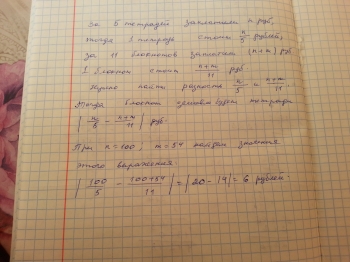 за 5 тетрадей заплатили n руб,
тогда 1 тетрадь стоит n/5 рублей,
за 11 блокнотов заплатили (n+m) руб
1 блокнот стоит (n+m)/11 руб.
нужно найти разность n/5 и (n+m)/11
Тогда блокнот тетради
| n/5 - (n+m)/11 | руб.
При n=100, m=54 найдём значение
этого выражения.
| 100/5 - (100+54)/11 | = |20 - 14| = 6 рублей.